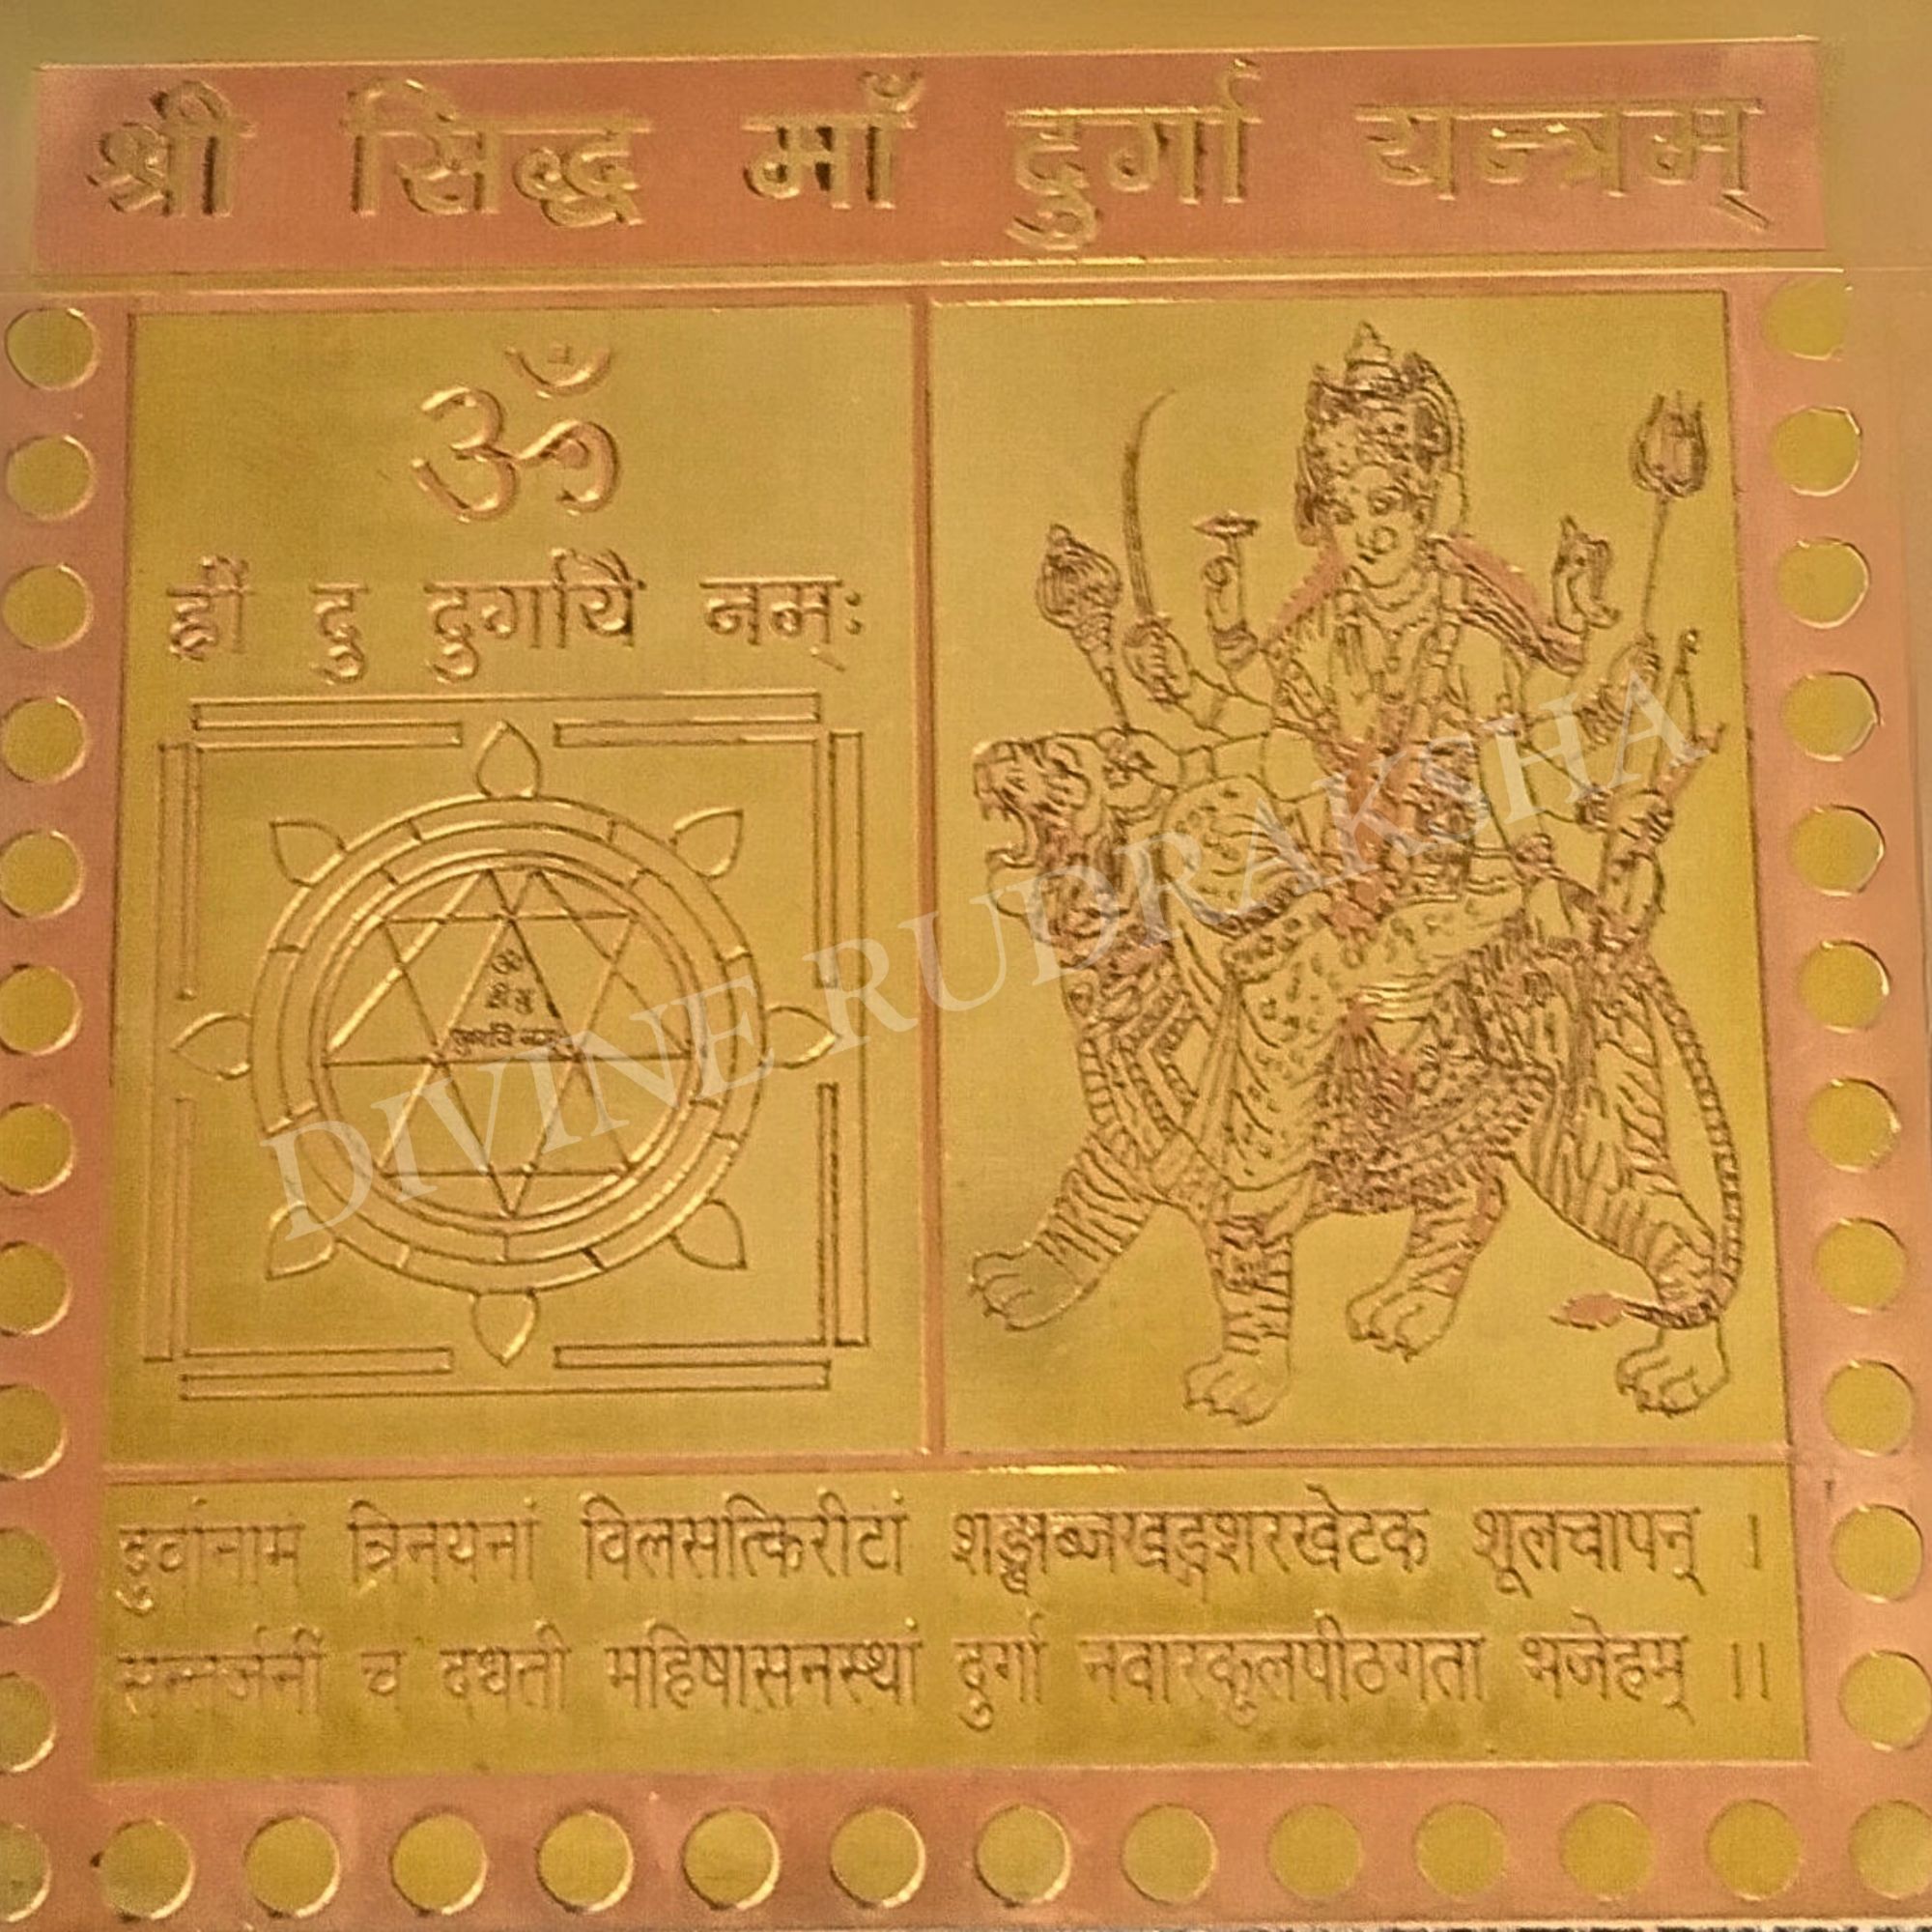 श्री सिद्ध माँ दुर्गा यन्त्रम्
ॐ
ह्रीं दु दुर्गायै नम्ः
दुर्गायै नमः
DIVINE RUDRAKSHA
दुर्वानाम त्रिनयनां विलसत्किरीटां शङ्खाब्जखड्गशरखेटक शूलचापन् ।
सन्तर्जनीं च दधती महिषासनस्थां दुर्गा नवारकूलपीठगता भजेहम् ।।